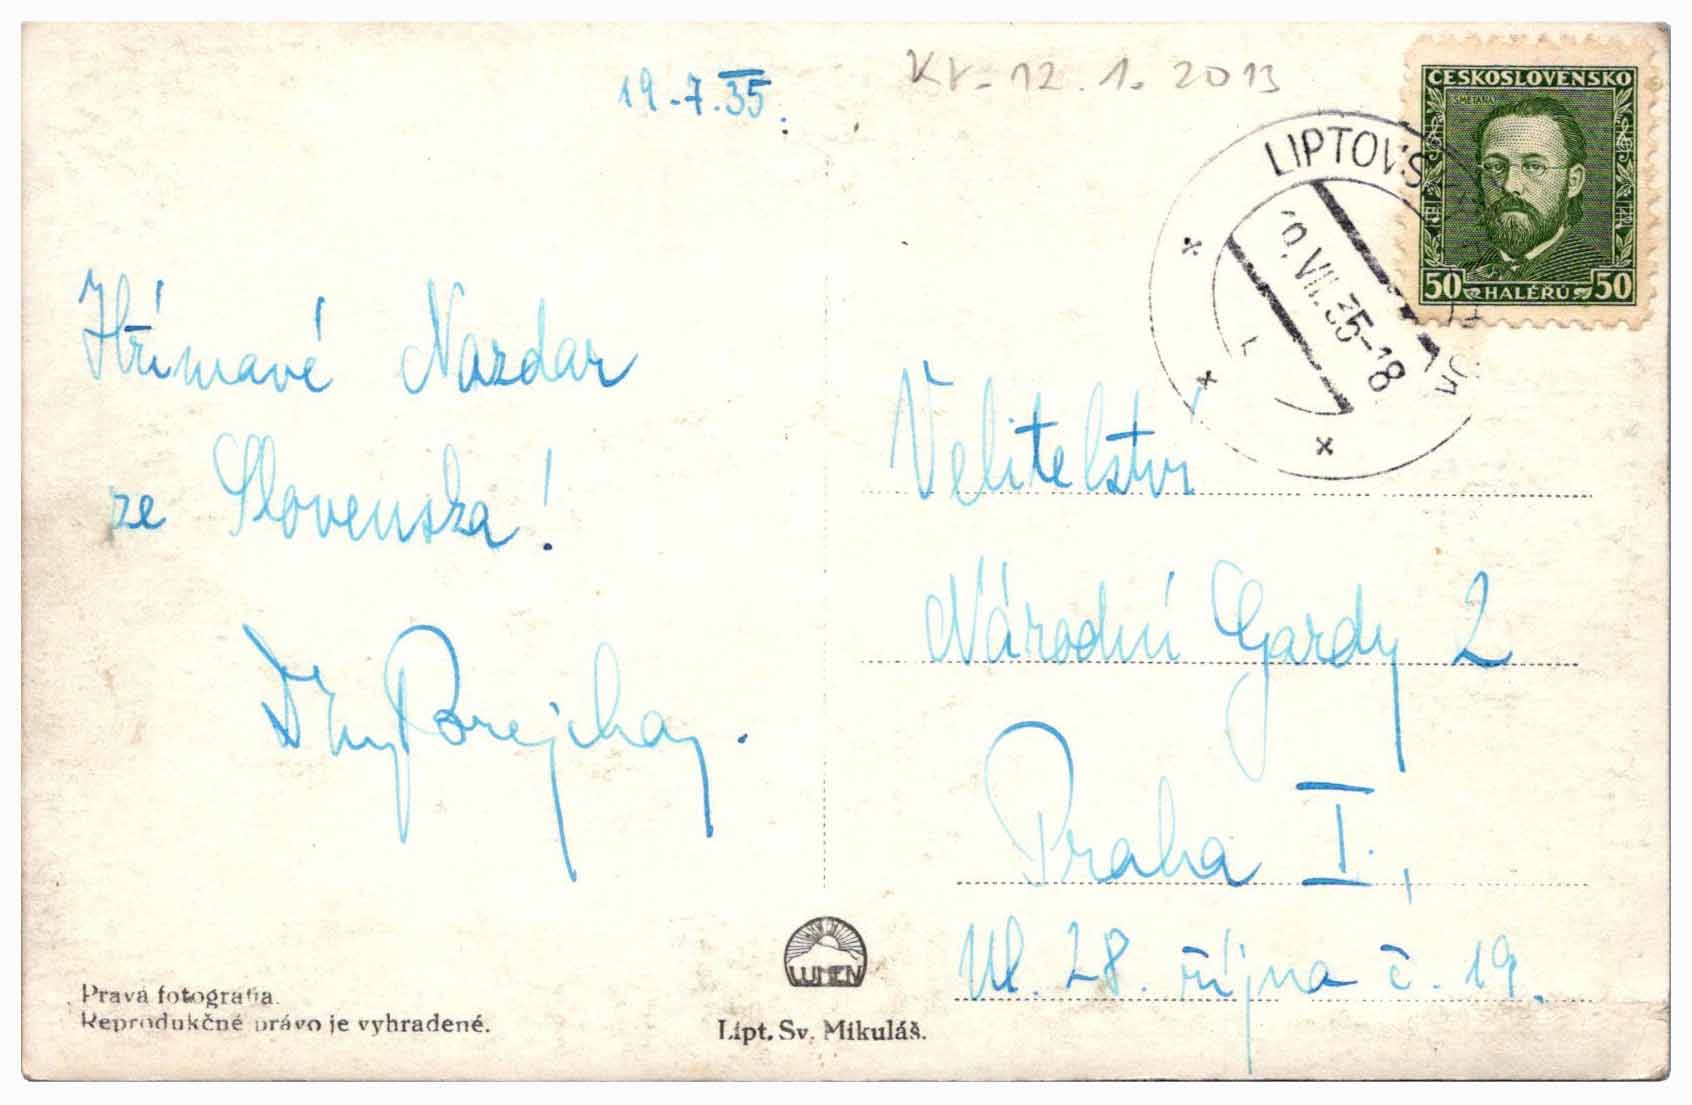 19.7.35.
Kr. 12.1.2013
ČESKOSLOVENSKO
SMETANA
50 HALÉŘŮ 50
LIPTOVSK
19.VII.35-18
Hřímavé Nazdar
ze Slovenska!
Velitelství
Národní Gardy 2
Praha I,
Ul. 28. října č. 19.
LUMEN
Pravá fotografia.
Reprodukčné právo je vyhradené.
Lipt. Sv. Mikuláš.